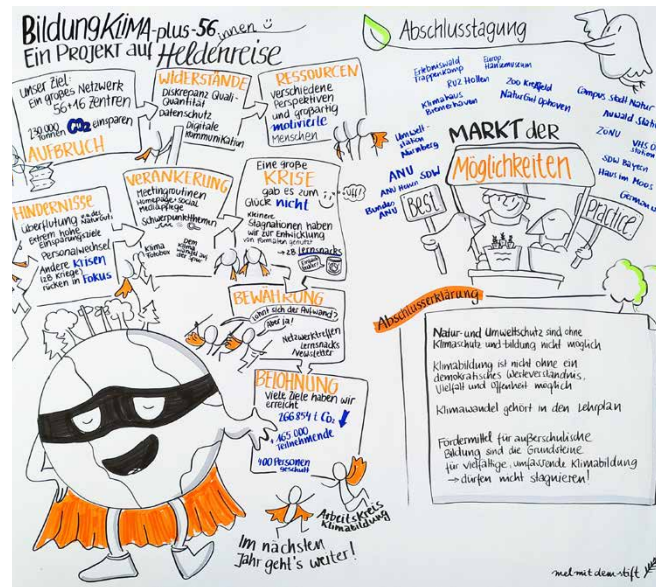 BildungKlima-plus-56 innen
Ein Projekt auf Heldenreise
Unser Ziel:
Ein großes Netzwerk
56+16 Zentren
230.000
Tonnen CO2 einsparen
AUFBRUCH
WIDERSTÄNDE
Diskrepanz Quali-
Quantität
Datenschutz
Digitale
Kommunikation
RESSOURCEN
verschiedene
Perspektiven
und großartig
motivierte
Menschen
HINDERNISSE
Überflutung
Extrem hohe
Einsparungsziele
Personalwechsel
Andere Krisen
(zB Kriege)
rücken in Fokus
VERANKERUNG
Meetingroutinen
Homepage + social
Mediapflege
Schwerpunktthemen
Klima
Fotobox
Dem
Klima
wandel auf
der Spur
Eine große
KRISE
gab es zum
Glück nicht
uff!
kleinere
Stagnationen haben
wir zur Entwicklung
von Formaten genutzt
→ zB Lernsnacks
BEWÄHRUNG
Lohnt sich der Aufwand?
Aber ja!
Netzwerktreffen
Lernsnacks
Newsletter
BELOHNUNG
Viele Ziele haben wir
erreicht
266854 t CO2
165 000
Teilnehmende
400 Personen
geschult
Arbeitskreis
Klimabildung
Im nächsten
Jahr geht's weiter!
Abschlusstagung
Erlebniswald
Trappenkamp
Europ.
Hansemuseum
RUZ Hollen
Zoo Krefeld
Klimahaus
Bremerhaven
NaturGut Ophoven
Campus Stadt Natur
Auwald Station
Umwelt-
station
Nürnberg
ZONU
VHS
station
ANU
SDW
SDW Bayern
Haus im Moos
Bundes
ANU
Germanwatch
MARKT der
Möglichkeiten
Best
Practice
Abschlusserklärung
Natur- und Umweltschutz sind ohne
Klimaschutz und -bildung nicht möglich
Klimabildung ist nicht ohne ein
demokratisches Werteverständnis,
Vielfalt und Offenheit möglich
Klimawandel gehört in den Lehrplan
Fördermittel für außerschulische
Bildung sind die Grundsteine
für vielfältige, umfassende Klimabildung
→ dürfen nicht stagnieren!
mel mit dem stift